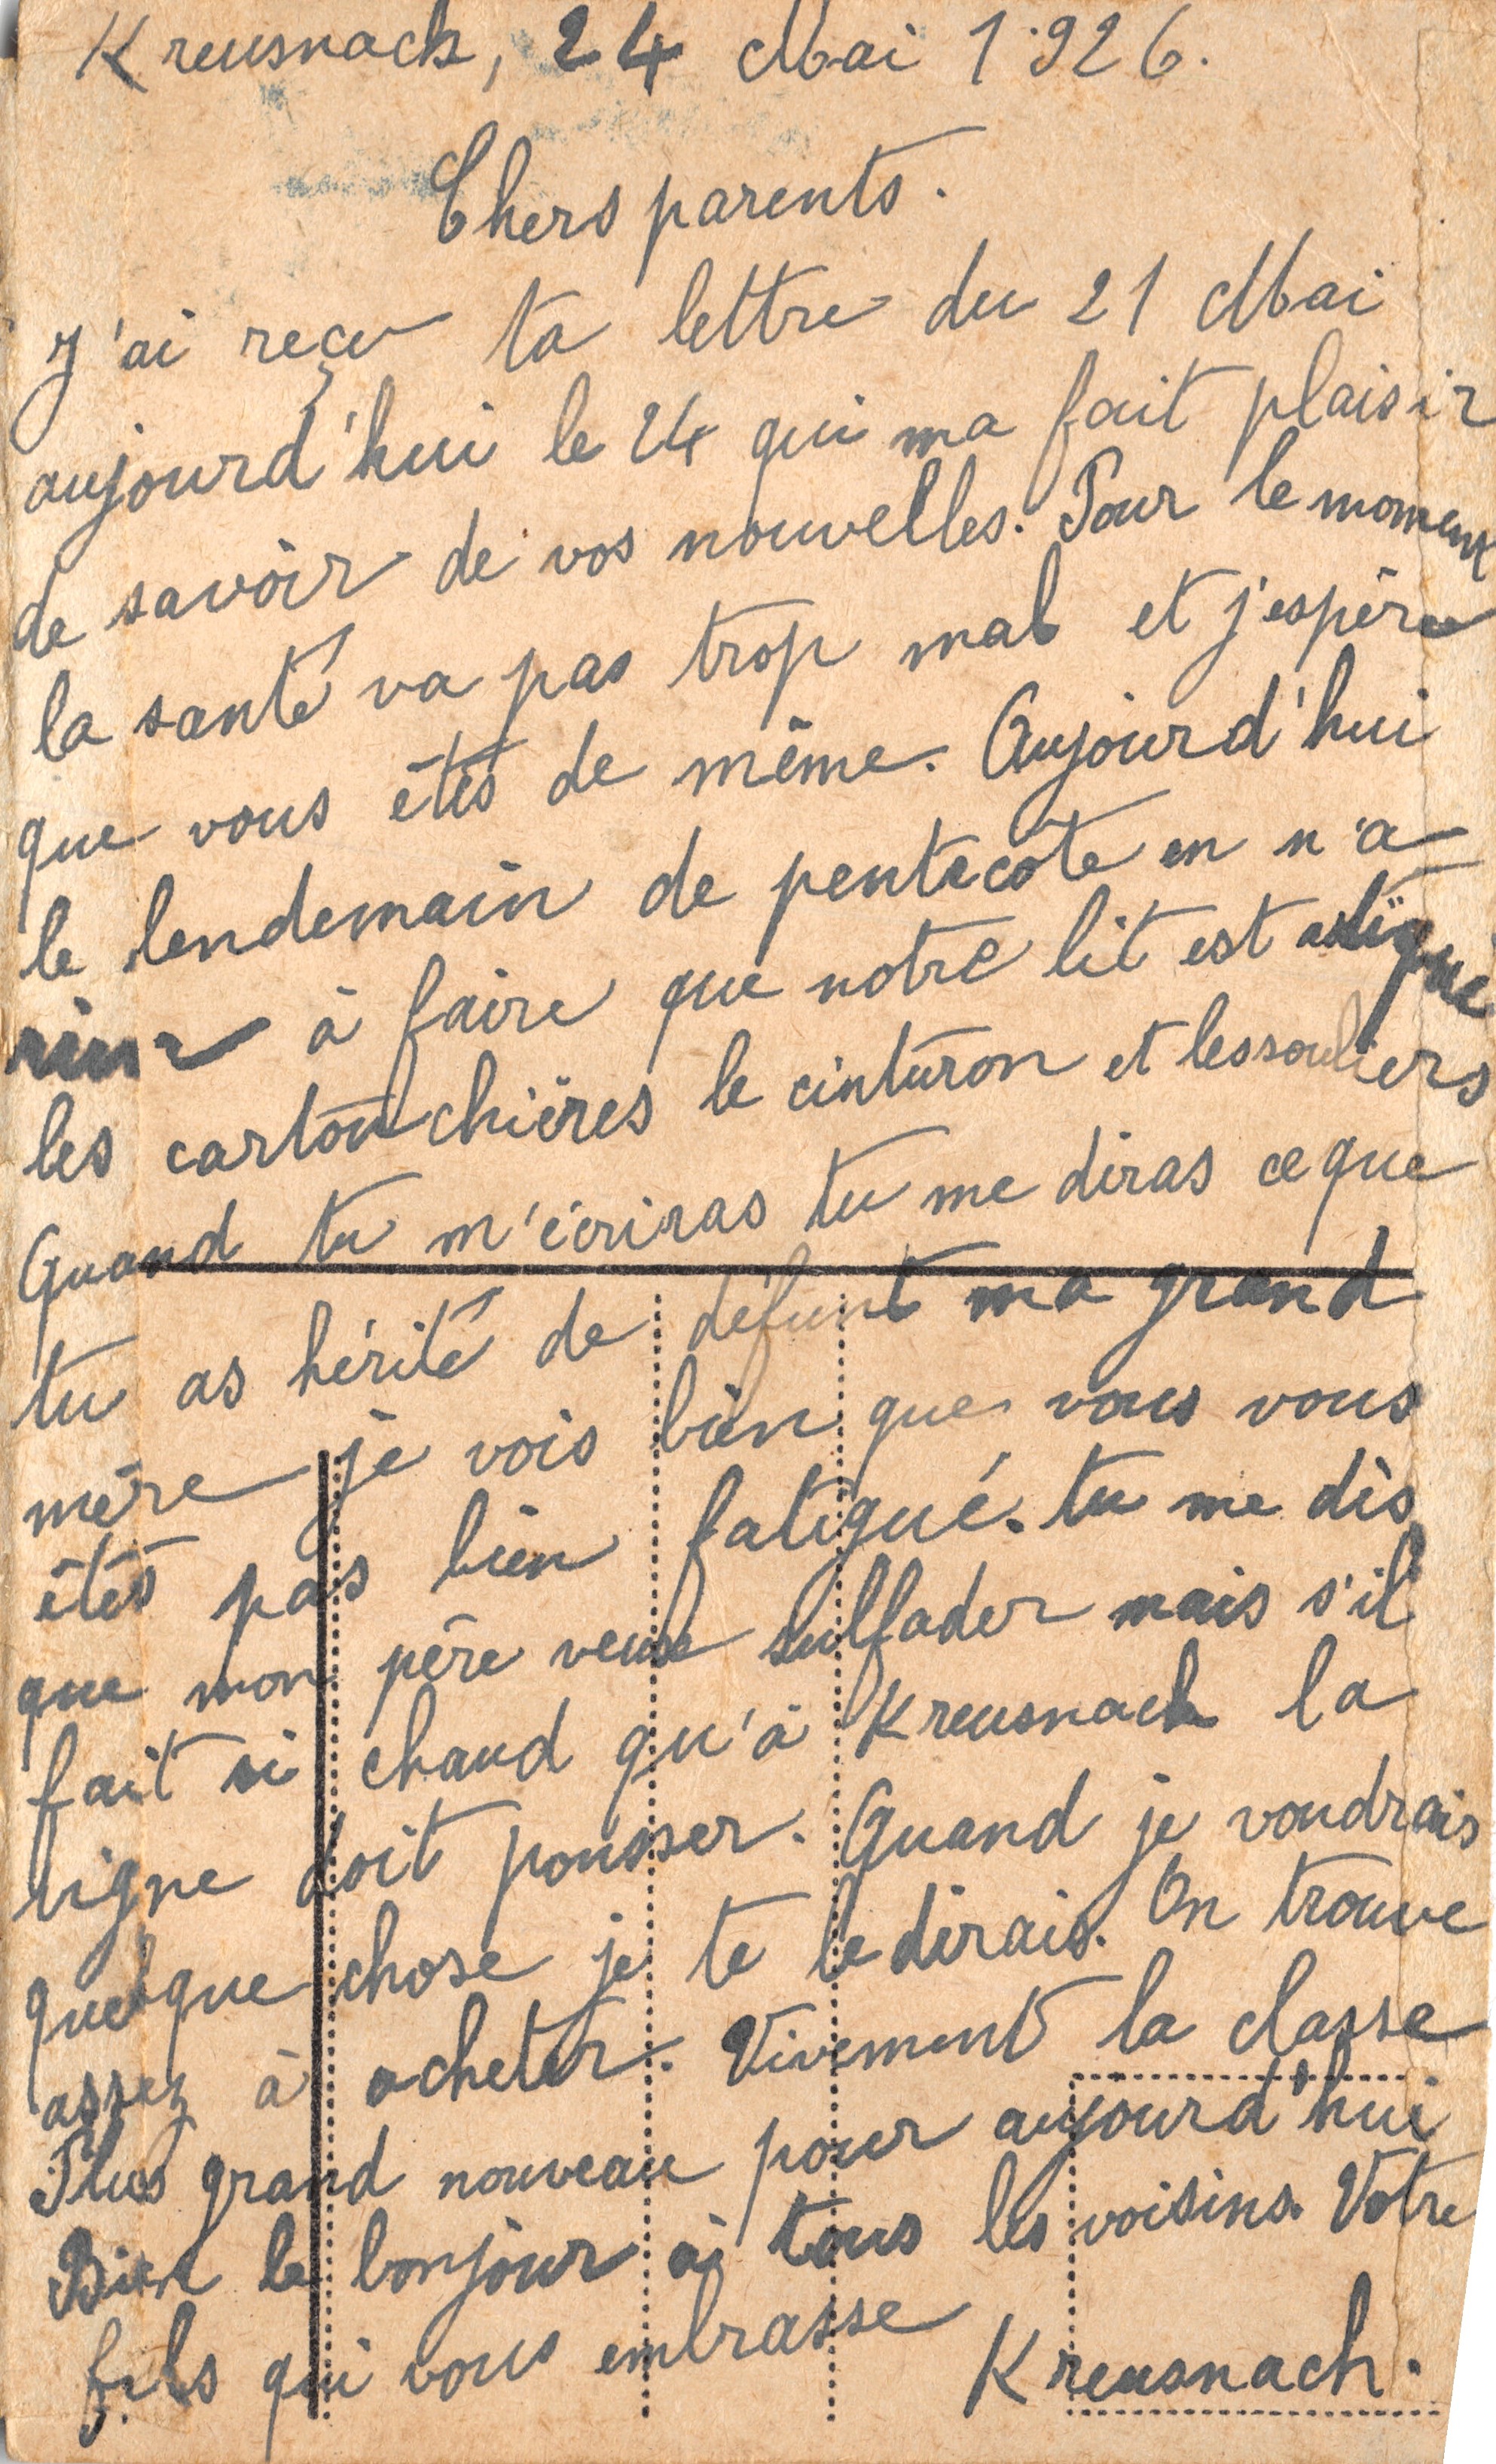 Kreusnach, 24 Mai 1926.
Chers parents.
J'ai reçu ta lettre du 21 Mai
aujourd'hui le 24 qui ma fait plaisir
de savoir de vos nouvelles. Pour le moment
la santé va pas trop mal et j'espère
que vous étes de même. Aujourd'hui
le lendemain de pentecote en n'a
rien à faire que notre lit est astiqué
les cartouchières le cinturon et les souliers
Quand tu m'écriras tu me diras ce que
tu as hérité de défunt ma grand
mère je vois bien que vous vous
étes pas bien fatigué. tu me dis
que mon père veux sulfader mais s'il
fait si chaud qu'à Kreusnach la
vigne doit pousser. Quand je voudrais
quelque chose je te le dirais. On trouve
assez à acheter. Vivement la classe
Plus grand nouveau pour aujourd'hui
Bien le bonjour à tous les voisins. Votre
fils qui vous embrasse
Kreusnach.